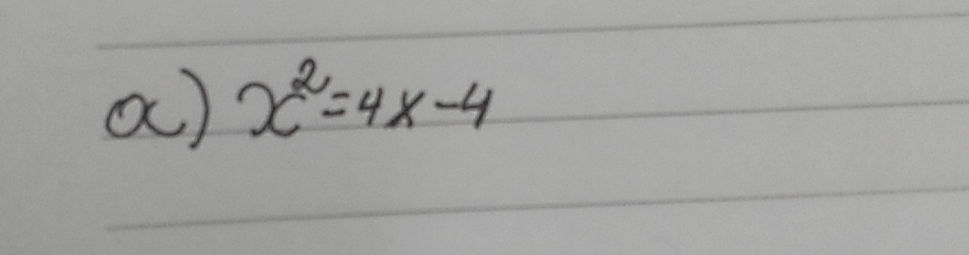 a) x²=4x-4